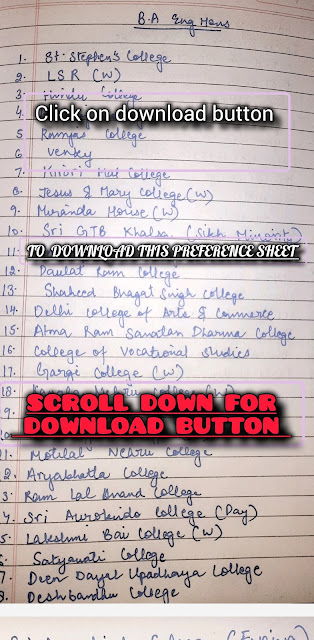 B.A Eng Hons
1. St. Stephen's College
2. LSR (W)
3. Hindu College
4
Click on download button
5 Ramjas College
6 Venky
7. Kirori Mal College
8. Jesus & Mary College (W)
9. Miranda House (W)
10. Sri GTB Khalsa (Sikh Minority)
11
TO DOWNLOAD THIS PREFERENCE SHEET
12. Daulat Ram College
13. Shaheed Bhagat Singh College
14. Delhi College of Arts & Commerce
15. Atma Ram Sanatan Dharma College
16. College of Vocational Studies
17. Gargi College (W)
18. Kamala Nehru College (W)
9
SCROLL DOWN FOR
DOWNLOAD BUTTON
11. Motilal Nehru College
2. Aryabhatta College
3 Ram Lal Anand College
4 Sri Aurobindo College (Day)
5. Lakshmi Bai College (W)
6 Satyawati College
7. Deen Dayal Upadhaya College
8 Deshbandhu College